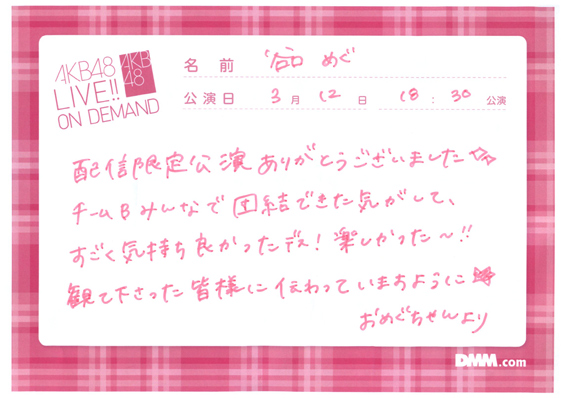 AKB48
LIVE!!
ON DEMAND
AKB
48
名前 谷口 めぐ
公演日 3月12日 18:30公演
配信限定公演ありがとうございました☆
チームBみんなで団結できた気がして、
すごく気持ち良かったデス!楽しかった〜!!
観て下さった皆様に伝わっていますように☆
おめぐちゃんより
DMM.com